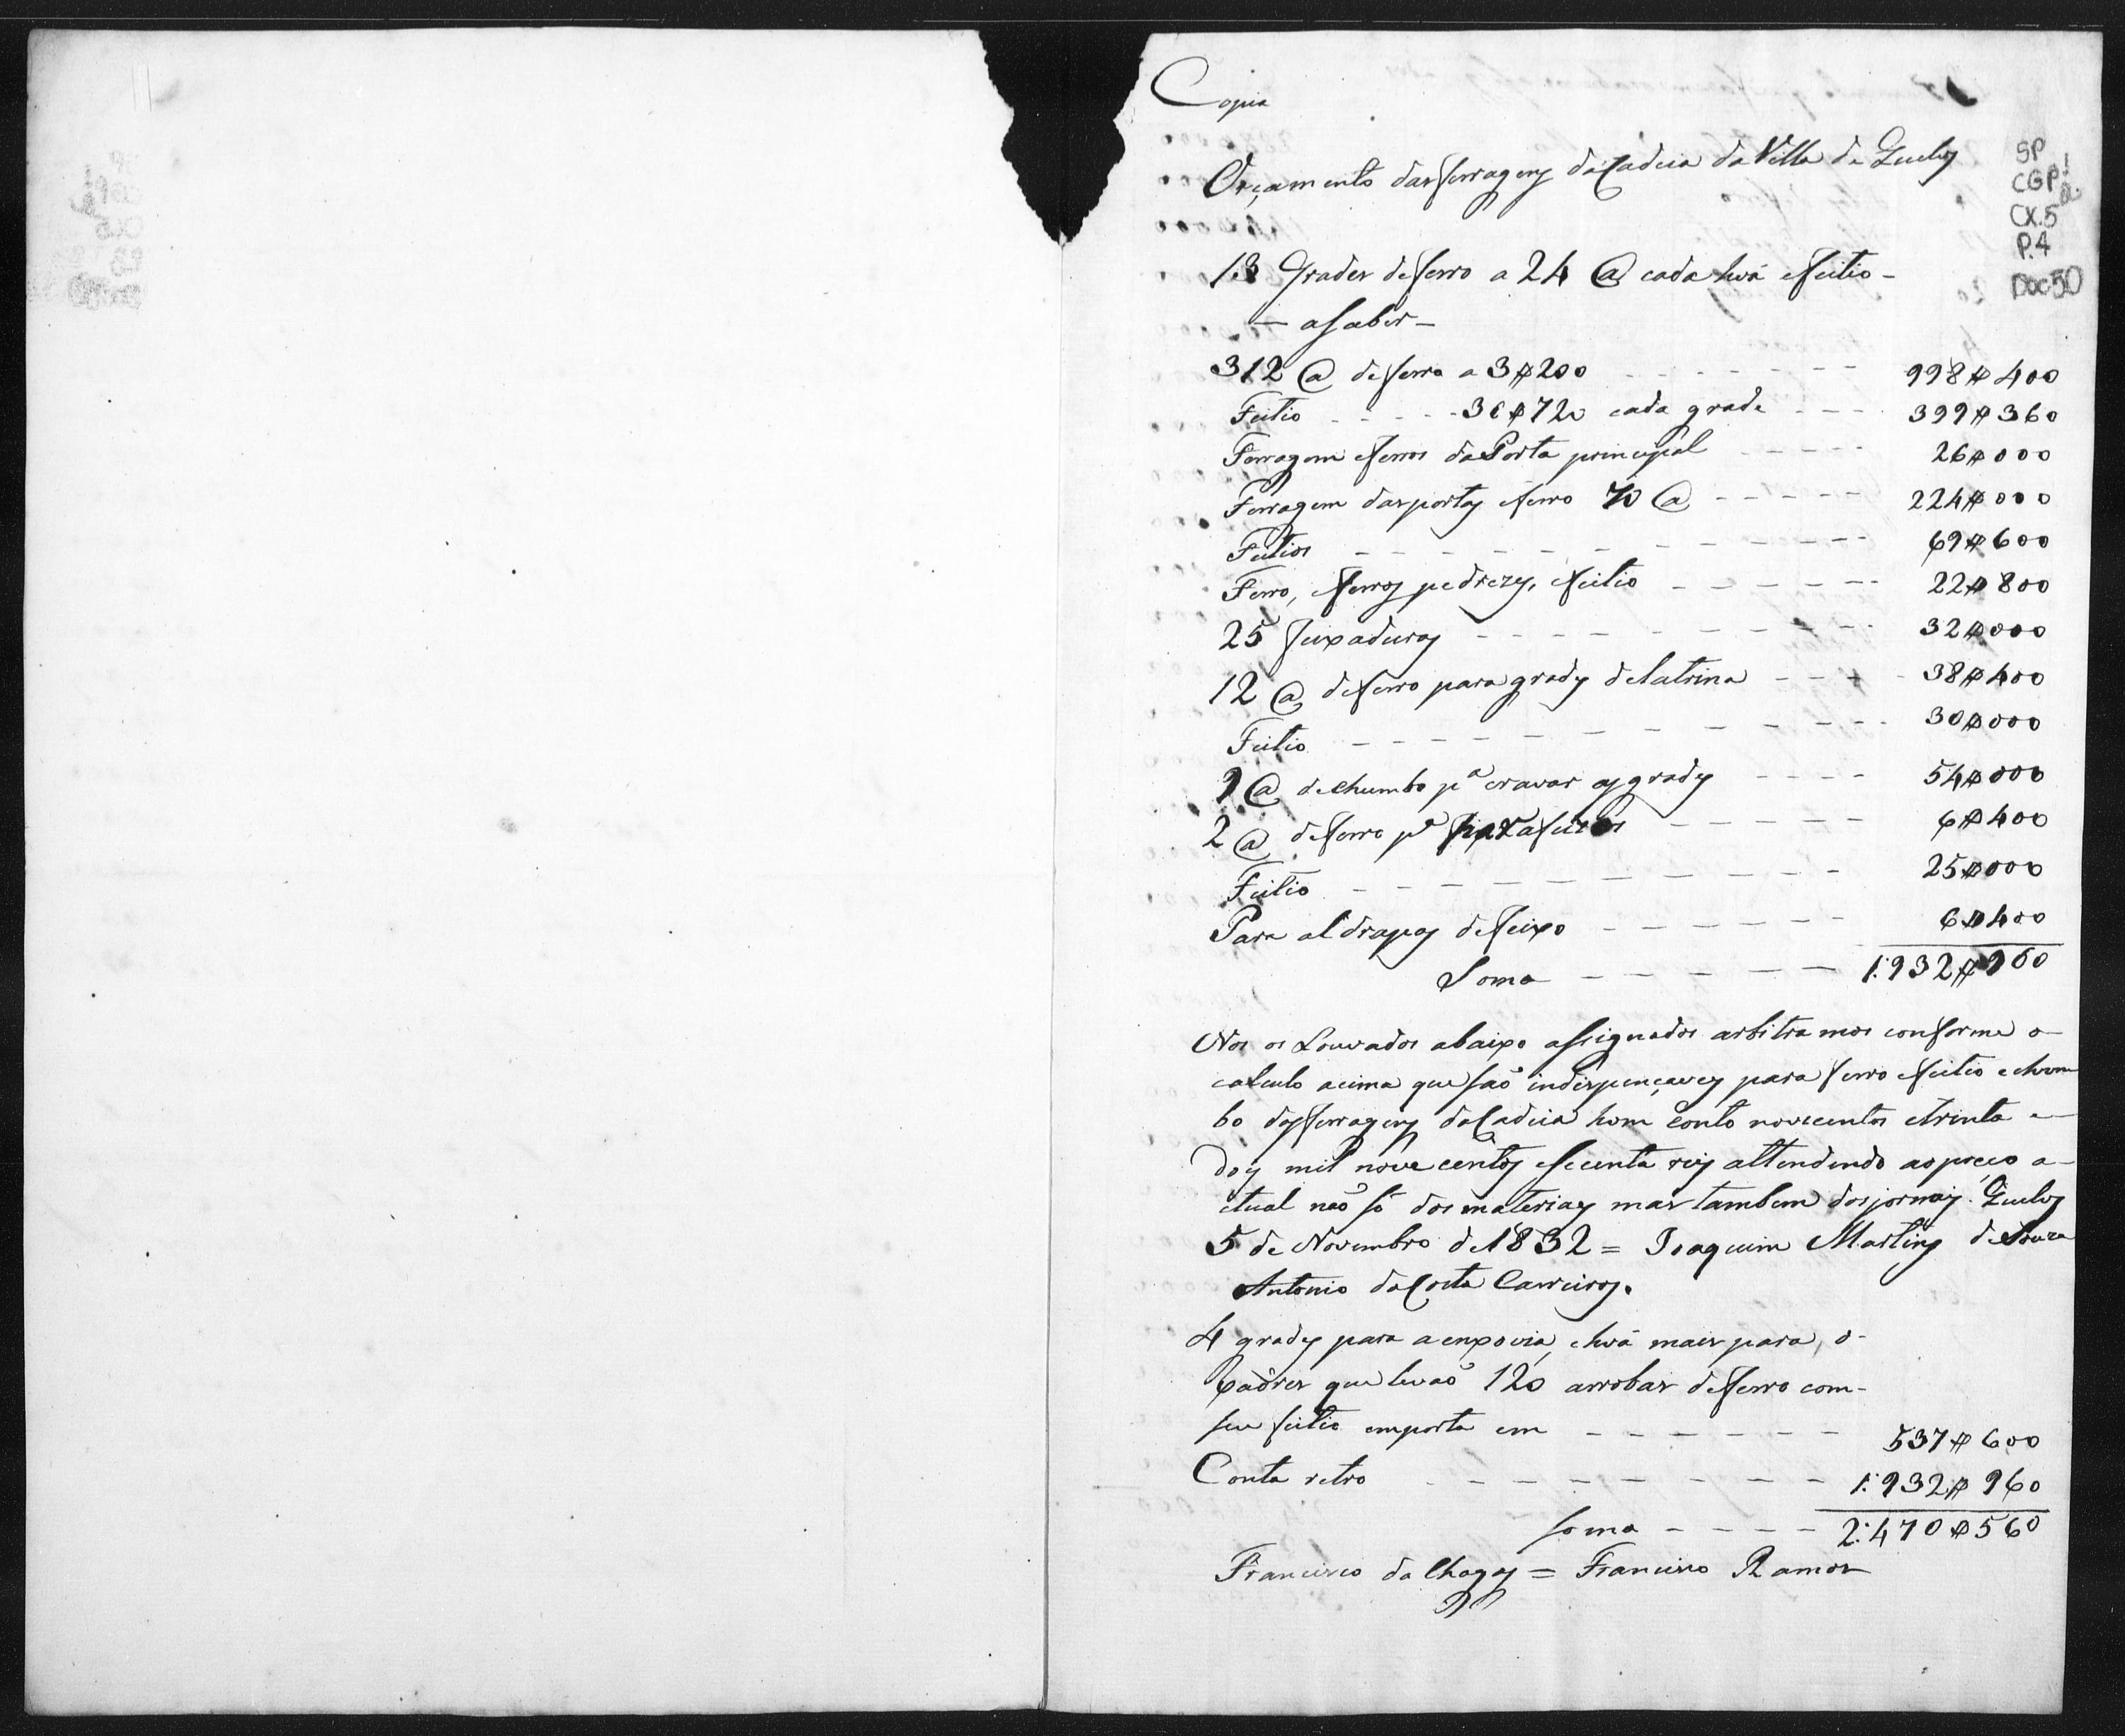 Copia
SP
CGP1
CX.5
P.4
Doc50
Orçamento das ferragens da Cadeia da Villa de Queluz
13 Grades de ferro a 24 @ cada huã e feitio -
- a saber -
312 @ de ferro a 3$200 - - - - - - - 998$400
Feitio - - - - 30$720 cada grade - - - 399$360
Ferragem e ferros da Porta principal - - - - - 26$000
Ferragem das portas e ferro 70 @ - - - - - 224$000
Feitios - - - - - - - - - - - - 69$600
Ferro, e ferros pedrezes, e feitio - - - - - - 22$800
25 feixaduras - - - - - - - - - - 32$000
12 @ de ferro para grades de latrina - - - - 38$400
Feitio - - - - - - - - - - - - 30$000
9 @ de chumbo pª cravar as grades - - - - 54$000
2 @ de ferro pª parafuzos - - - - - 6$400
Feitio - - - - - - - - - - - 25$000
Para aldrapas de feixo - - - - - - 6$400
Soma - - - - - - 1:932$960
Nos os Louvados abaixo assignados arbitramos conforme o
calculo acima que saõ indispençaveis para ferro e feitio e chum
bo das ferragens da Cadeia hum conto novecentos e trinta e
dois mil nove centos e secenta reis attendendo ao preço a-
ctual naõ só dos materiaes mas tambem dos jornais. Queluz
5 de Novembro de 1832 = Joaquim Martins de Souza
Antonio da Costa Carreiros.
4 grades para a enxovia, e huã mais para, o
xadres que levaõ 120 arrobas de ferro com-
seu feitio emporta em - - - - - - - 537$600
Conta retro - - - - - - - - - 1:932$960
soma - - - - 2:470$560
Francisco da Chagas = Francisco Ramos